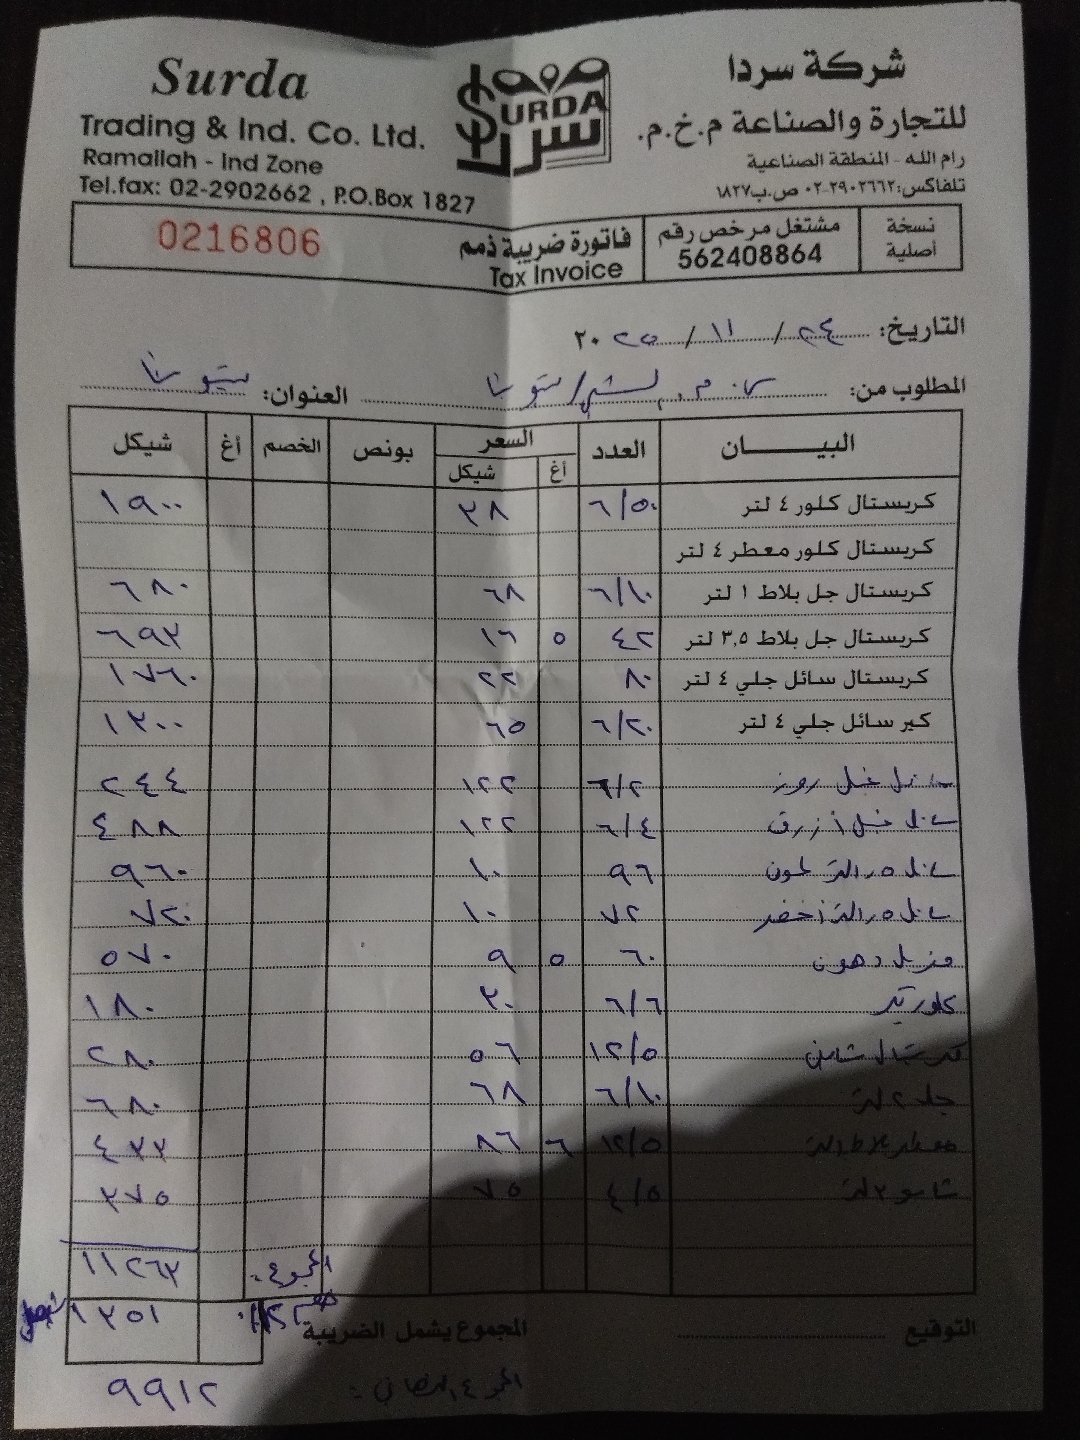 Surda
Trading & Ind. Co. Ltd.
Ramallah - Ind Zone
Tel.fax: 02-2902662 , P.O.Box 1827
SURDA
سردا
شركة سردا
للتجارة والصناعة م.خ.م.
رام الله - المنطقة الصناعية
تلفاكس: ٢٩٠٢٦٦٢-٠٢ ص.ب ١٨٢٧
نسخة أصلية
مشتغل مرخص رقم 562408864
فاتورة ضريبة ذمم
Tax Invoice
0216806
التاريخ: ٢٤ / ١١ / ٢٠٢٥
المطلوب من: العنوان:
البيـــــان العدد السعر بونص الخصم أغ شيكل
أغ شيكل
كريستال كلور ٤ لتر ٦/٥٠ ٣٨ ١٩٠٠
كريستال كلور معطر ٤ لتر
كريستال جل بلاط ١ لتر ٦/١٠ ٦٨ ٦٨٠
كريستال جل بلاط ٣,٥ لتر ٤٢ ٥ ١٦ ٦٩٣
كريستال سائل جلي ٤ لتر ٨٠ ٢٢ ١٧٦٠
كير سائل جلي ٤ لتر ٦/٢٠ ٦٥ ١٣٠٠
سائل غسيل روز ٦/٢ ١٢٢ ٢٤٤
سائل غسيل أزرق ٦/٤ ١٢٢ ٤٨٨
سائل ٥,١ لتر ليمون ٩٦ ١٠ ٩٦٠
سائل ٥,١ لتر أخضر ٧٢ ١٠ ٧٢٠
مزيل دهون ٦٠ ٥ ٩ ٥٧٠
كلور ٦/٦ ٣٠ ١٨٠
كريستال ١٢/٥ ٥٦ ٢٨٠
جلد ٢ لتر ٦/١٠ ٦٨ ٦٨٠
معطر بلاط لتر ١٢/٥ ٦ ٨٦ ٤٣٣
شامبو ٣ لتر ٤/٥ ٧٥ ٣٧٥
المجموع: ١١٢٦٣
خصم ١٢٪ ١٣٥١
المجموع يشمل الضريبة
التوقيع
المجموع النهائي: ٩٩١٢